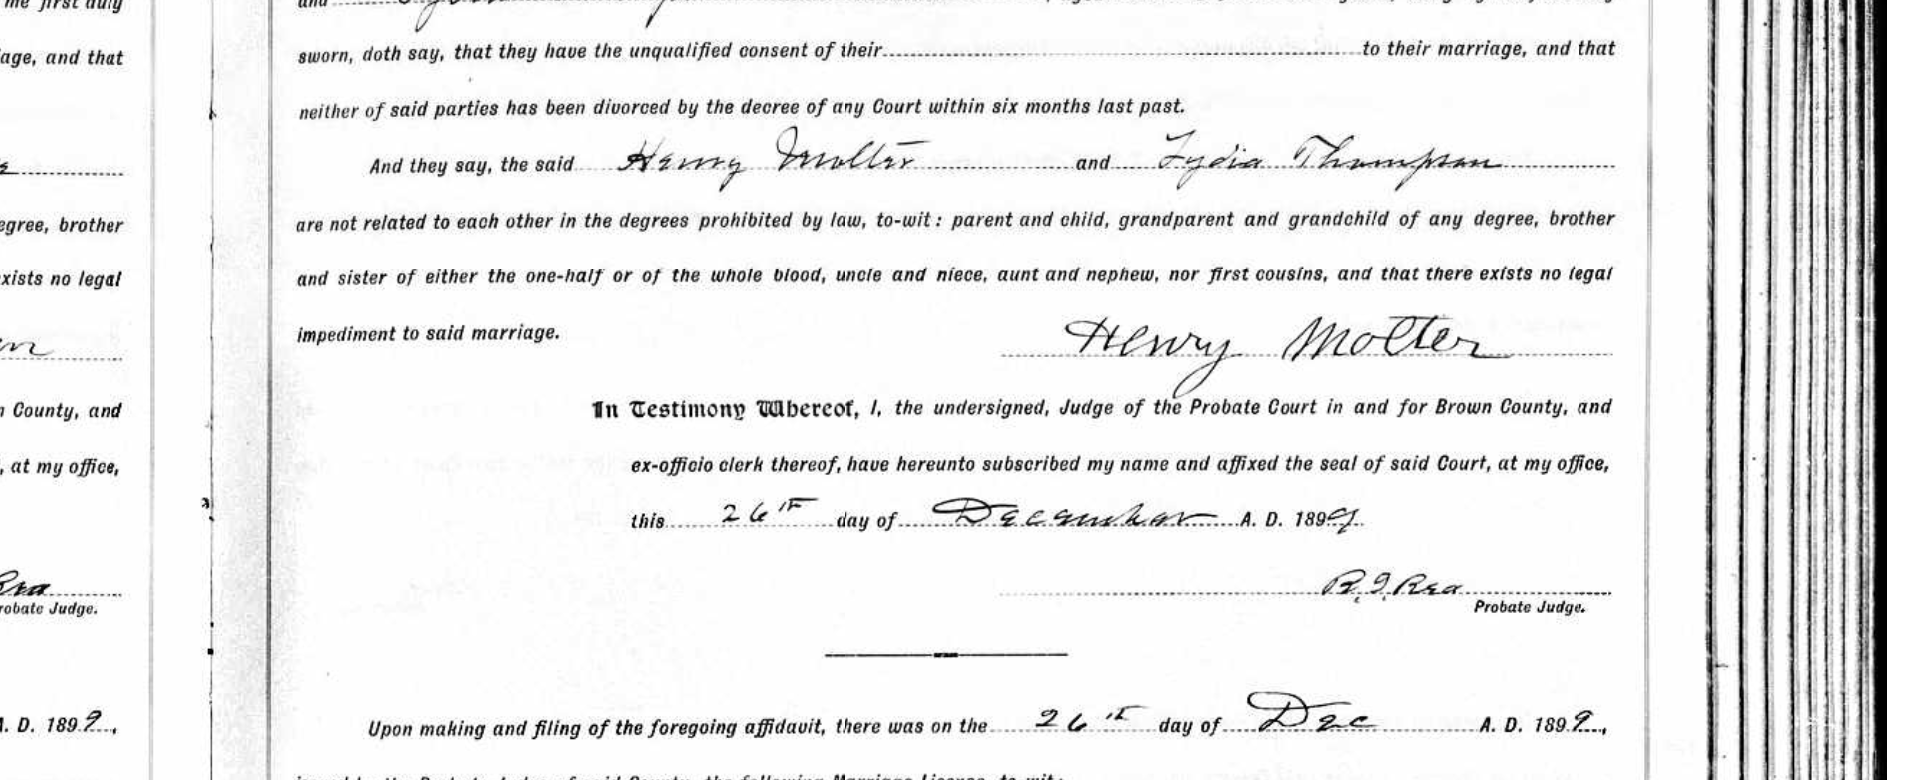 me first duly
age, and that
egree, brother
xists no legal
n County, and
, at my office,
Rea
robate Judge.
A. D. 1899.,
and
sworn, doth say, that they have the unqualified consent of their to their marriage, and that
neither of said parties has been divorced by the decree of any Court within six months last past.
And they say, the said Henry Molter and Lydia Thompson
are not related to each other in the degrees prohibited by law, to-wit: parent and child, grandparent and grandchild of any degree, brother
and sister of either the one-half or of the whole blood, uncle and niece, aunt and nephew, nor first cousins, and that there exists no legal
impediment to said marriage. Henry Molter
In Testimony Whereof, I, the undersigned, Judge of the Probate Court in and for Brown County, and
ex-officio clerk thereof, have hereunto subscribed my name and affixed the seal of said Court, at my office,
this 26th day of December A. D. 1899.
R. I. Rea
Probate Judge.
Upon making and filing of the foregoing affidavit, there was on the 26th day of Dec A. D. 1899.,
the following Marriage License, to wit: